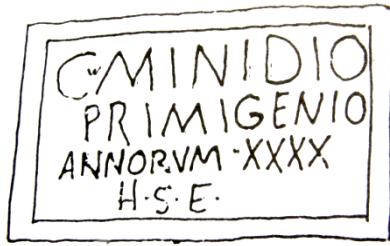 C·MINIDIO
PRIMIGENIO
ANNORVM·XXXX
H·S·E·